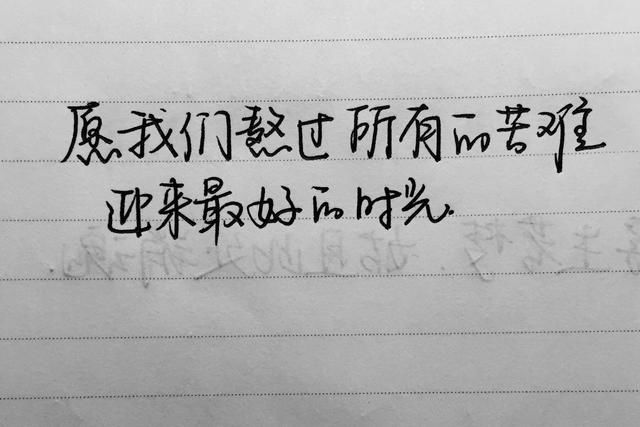 愿我们熬过所有的苦难
迎来最好的时光.